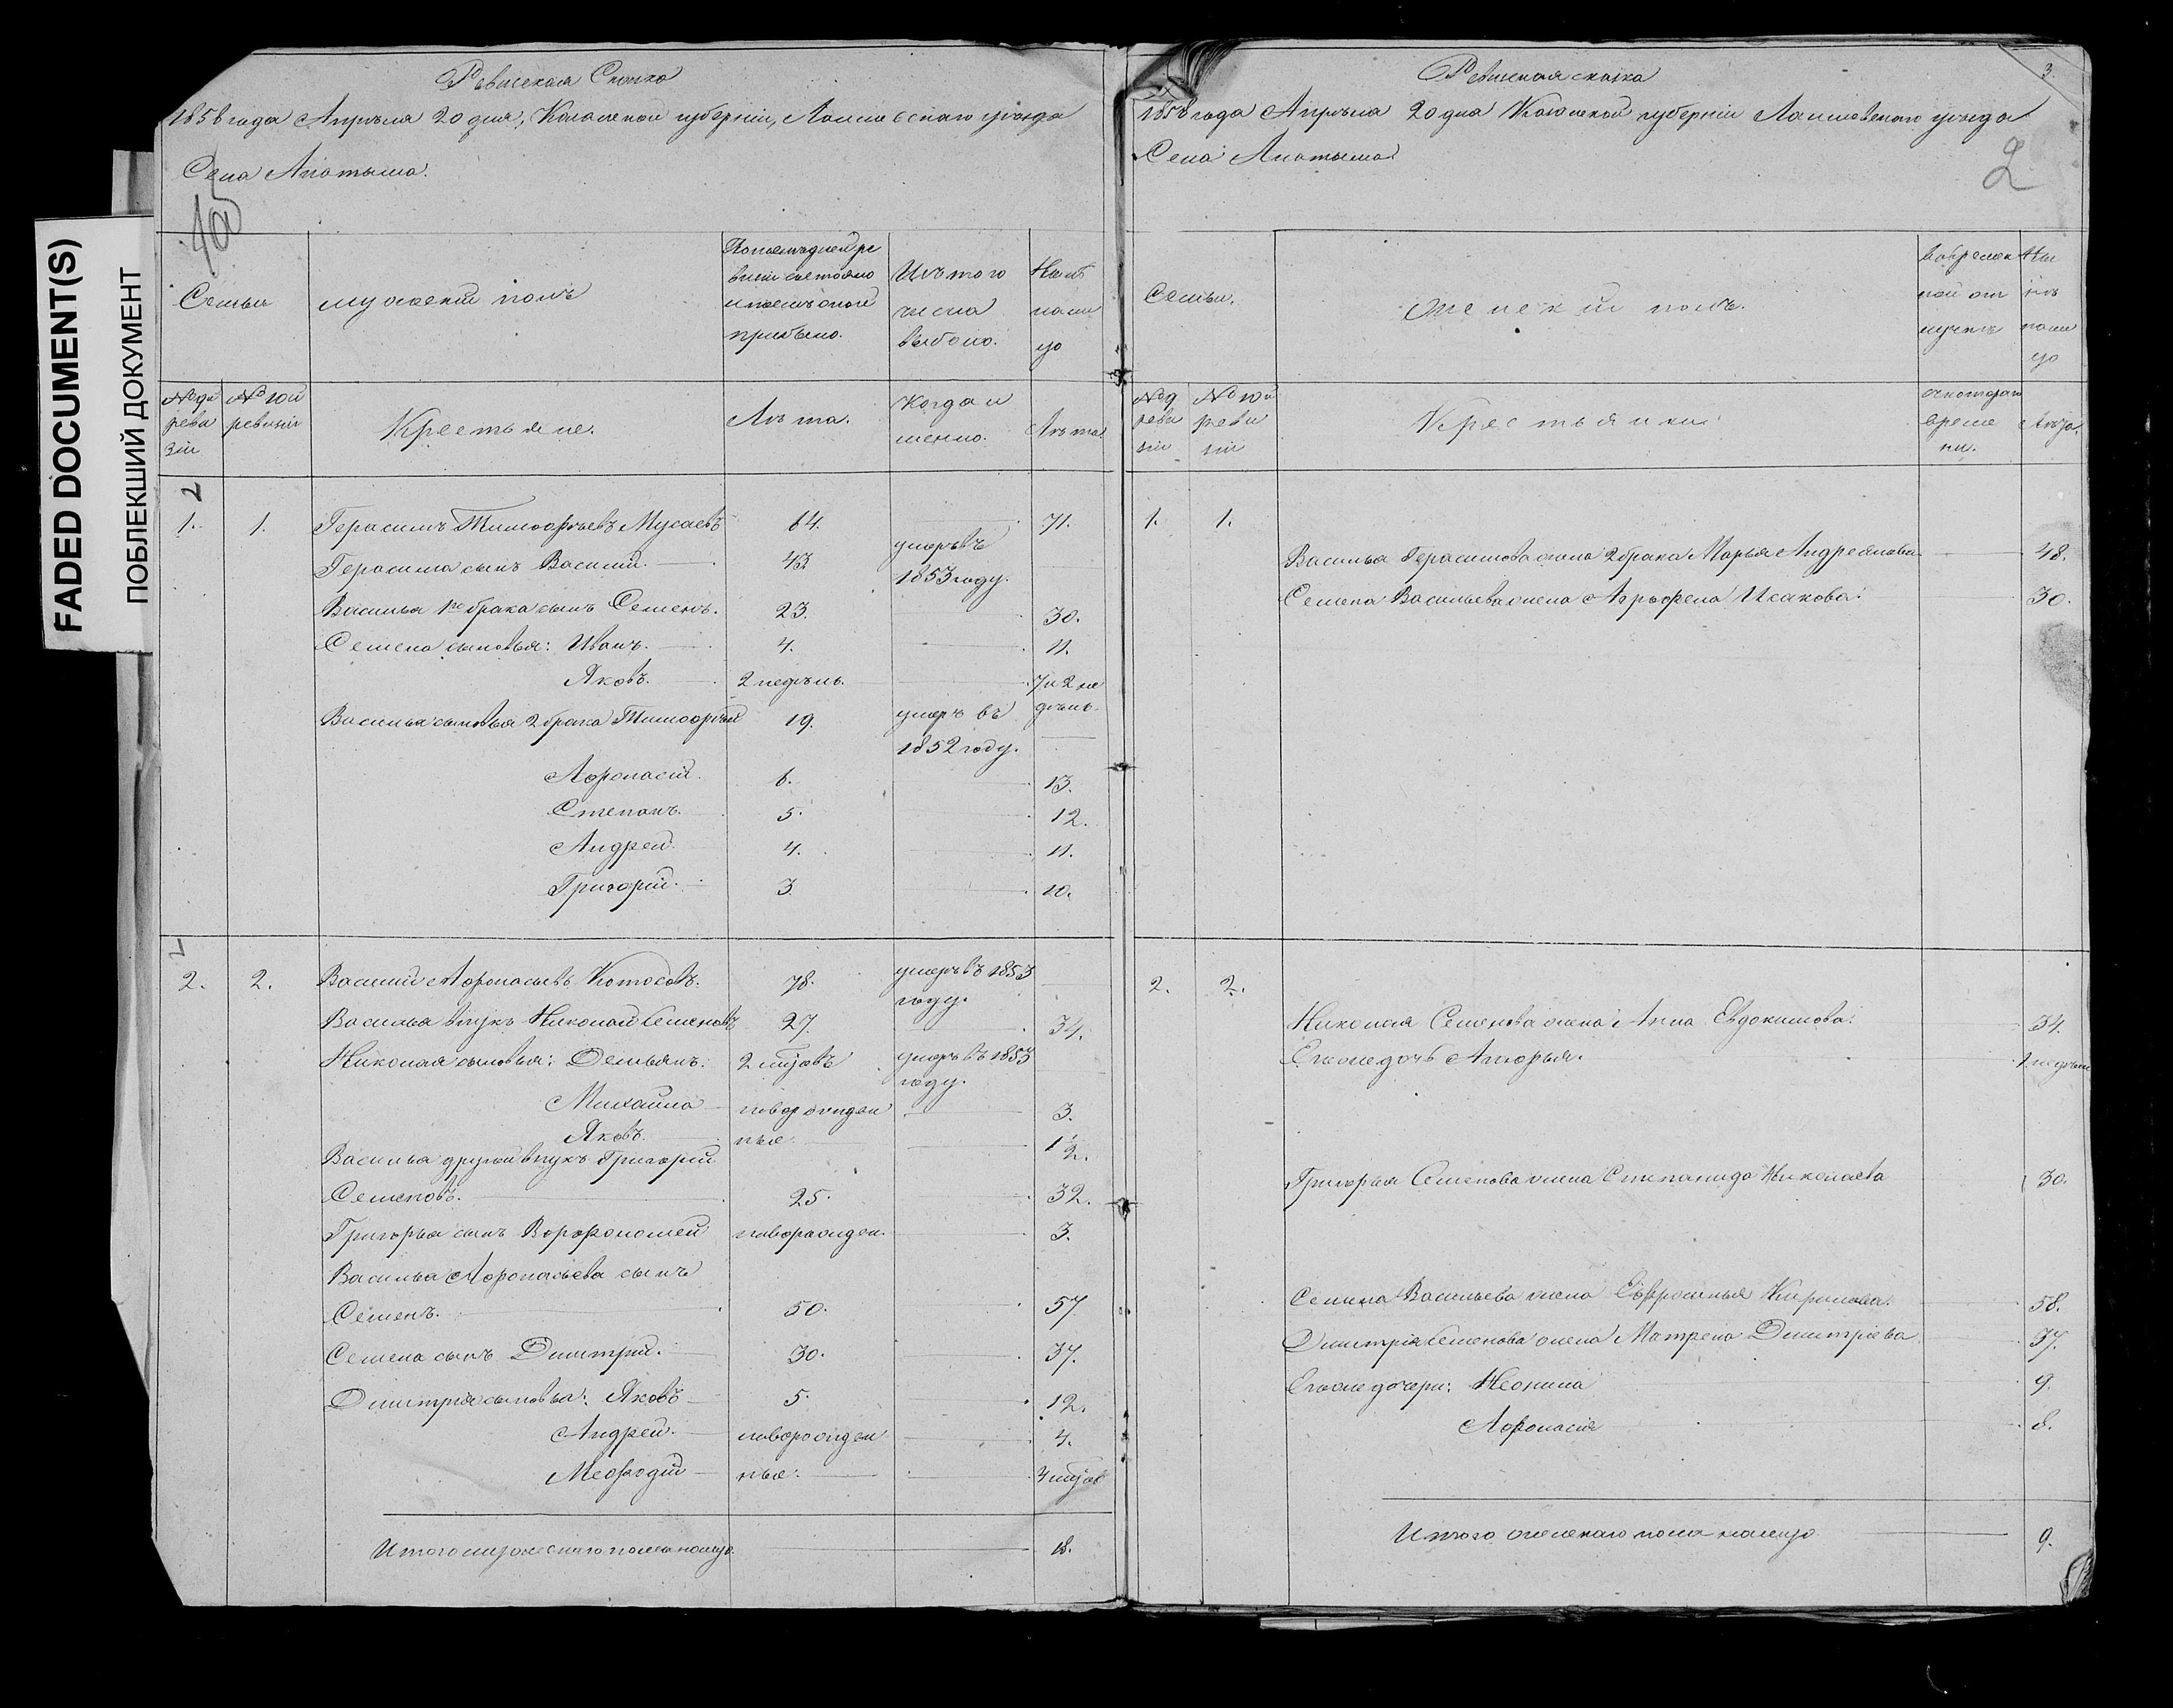 FADED DOCUMENT(S)
ПОБЛЕКШИЙ ДОКУМЕНТ
Ревизская Сказка
1858 года Апрѣля 20 дня, Казанской губерніи, Лаишевскаго уѣзда
Села
Семьи
мужеской полъ
По последней ре
визіи состояло
и послѣ оной
прибыло.
Изъ того
числа
выбыло.
Нынѣ
на ли
цо
№ 9й
реви
зіи
№ 10й
ревизіи
Крестьяне.
Лѣта.
Когда и
менно.
Лѣта
1. 1. Герасимъ Тимофѣевъ Мусаевъ 64. 71.
Герасима сынъ Василий. 43 умеръ въ
1853 году.
Василья 1го брака сынъ Семенъ. 23. 30.
Семена сыновья: Иванъ. 4. 11.
Яковъ. 2 недѣль. 7 и 2 не
дѣль
Василья сыновья 2 брака Тимофѣй 19. умеръ въ
1852 году.
Афонасій 6. 13.
Степанъ. 5. 12.
Андрей 4. 11.
Григорій. 3. 10.
2. 2. Василий Афонасьевъ 78. умеръ въ 1853
году.
Василья внукъ Николай Семеновъ 27. 34.
Николая сыновья: Демьянъ. 2 умеръ въ 1853
году.
Михайла новорожден 3.
Яковъ. ные. 1/2.
Василья другой внукъ Григорій
Семеновъ. 25. 32.
Григорья сынъ Ворфономей новорожден. 3.
Василья Афонасьева сынъ
Семенъ. 50. 57.
Семена сынъ Дмитрій. 30. 37.
Дмитрія сыновья: Яковъ 5. 12.
Андрей. новорожден 4.
Мефодій ные.
Итого мужескаго пола налицо. 18.
Ревизская сказка
3.
1858 года Апрѣля 20 дня Казанской губерніи Лаишевскаго уѣзда
Села
2
Семьи.
Женскій полъ.
Во времен
ной от
лучкѣ
Ны
нѣ
нали
цо
№ 9
реви
зіи
№ 10й
реви
зіи
Крестьянки
съ котораго
време
ни.
Лѣта.
1. 1.
Василья Герасимова жена 2 брака Марья Андреянова 48.
Семена Васильева жена Агрофена Исакова. 30.
2. 2.
Николая Семенова жена Анна Евдокимова. 34.
Егоже дочь 1 недѣли
Григорья Семенова жена Степанида Николаева 30.
Семена Васильева жена Ефросинья Кирилова. 58.
Дмитрія Семенова жена Матрена Дмитріева 37.
Егоже дочери: Неонила 9.
Афонасія 8.
Итого женскаго пола налицо 9.